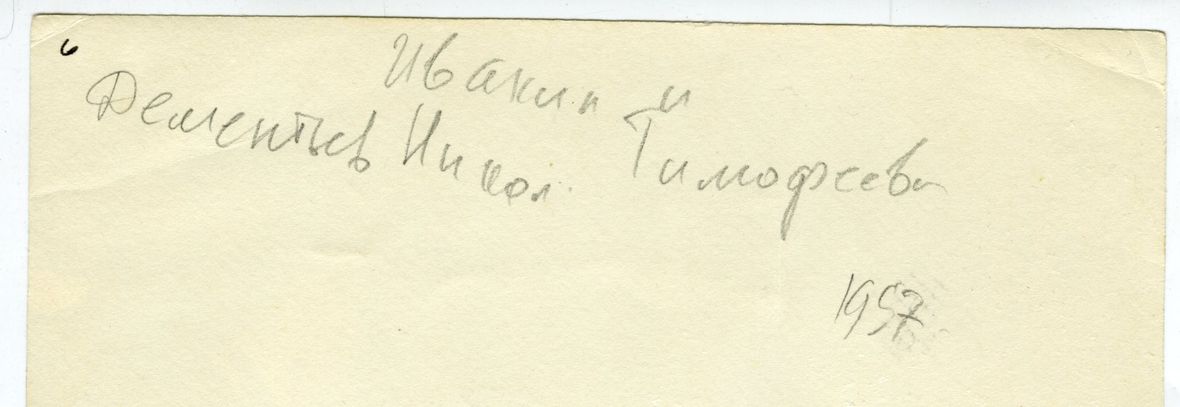 6
Ивакин и
Дементьев Никол. Тимофеев
1957